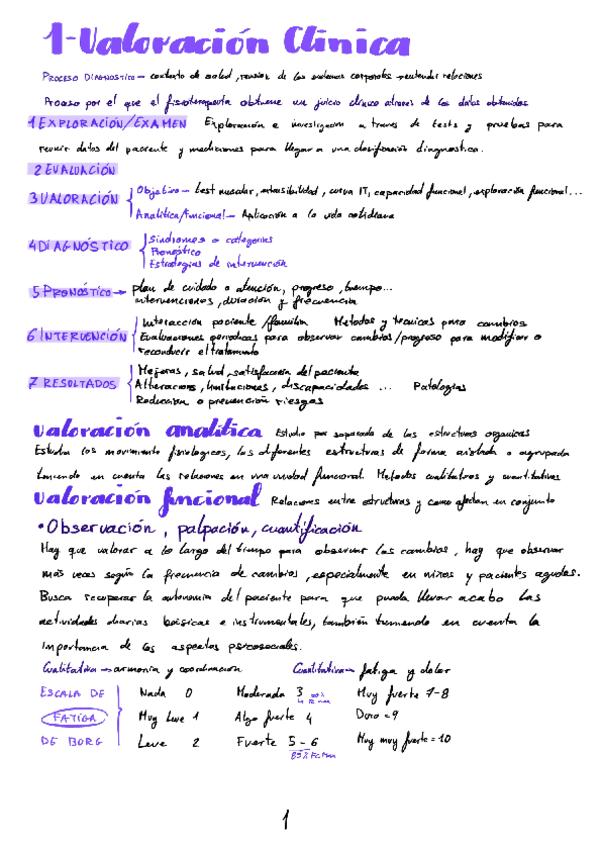 1-Valoración Clínica
PROCESO DIAGNOSTICO — contexto de salud, revisión de los sistemas corporales → entender relaciones
Proceso por el que el fisioterapeuta obtiene un juicio clínico através de los datos obtenidos
1 EXPLORACIÓN/EXAMEN Exploración e investigación a traves de tests y pruebas para
reunir datos del paciente y mediciones para llegar a una clasificación diagnostica.
2 EVALUACIÓN
3 VALORACIÓN Objetivo — test muscular, extensibilidad, curva IT, capacidad funcional, exploración funcional...
Analítica/Funcional — Aplicación a la vida cotidiana
4 DIAGNÓSTICO Síndromes o categorías
Pronóstico
Estrategias de intervención
5 PRONÓSTICO → plan de cuidado o atención, progreso, tiempo...
intervenciones, duración y frecuencia
6 INTERVENCIÓN Interacción paciente/familia Metodos y tecnicas para cambios
Evaluaciones periodicas para observar cambios/progreso para modificar o
reconducir el tratamiento
7 RESULTADOS Mejoras, salud, satisfacción del paciente
Alteraciones, limitaciones, discapacidades ... Patologías
Reducción o prevención riesgos
Valoración analítica Estudio por separado de las estructuras organicas
Estudia los movimiento fisiologicos, las diferentes estructuras de forma aislada o agrupada
teniendo en cuenta las relaciones en una unidad funcional. Metodos cualitativos y cuantitativos
Valoración funcional Relaciones entre estructuras y como afectan en conjunto
• Observación, palpación, cuantificación
Hay que valorar a lo largo del tiempo para observar los cambios, hay que observar
más veces según la frecuencia de cambios, especialmente en niños y pacientes agudos.
Busca recuperar la autonomia del paciente para que pueda llevar acabo las
actividades diarias básicas e instrumentales, también teniendo en cuenta la
importancia de los aspectos psicosociales.
Cualitativa → armonía y coordinación Cuantitativa → fatiga y dolor
ESCALA DE Nada 0 Moderada 3 Muy fuerte 7-8
FATIGA Muy Leve 1 Algo fuerte 4 Duro = 9
DE BORG Leve 2 Fuerte 5 - 6 Muy muy fuerte = 10
85% FcMax
1